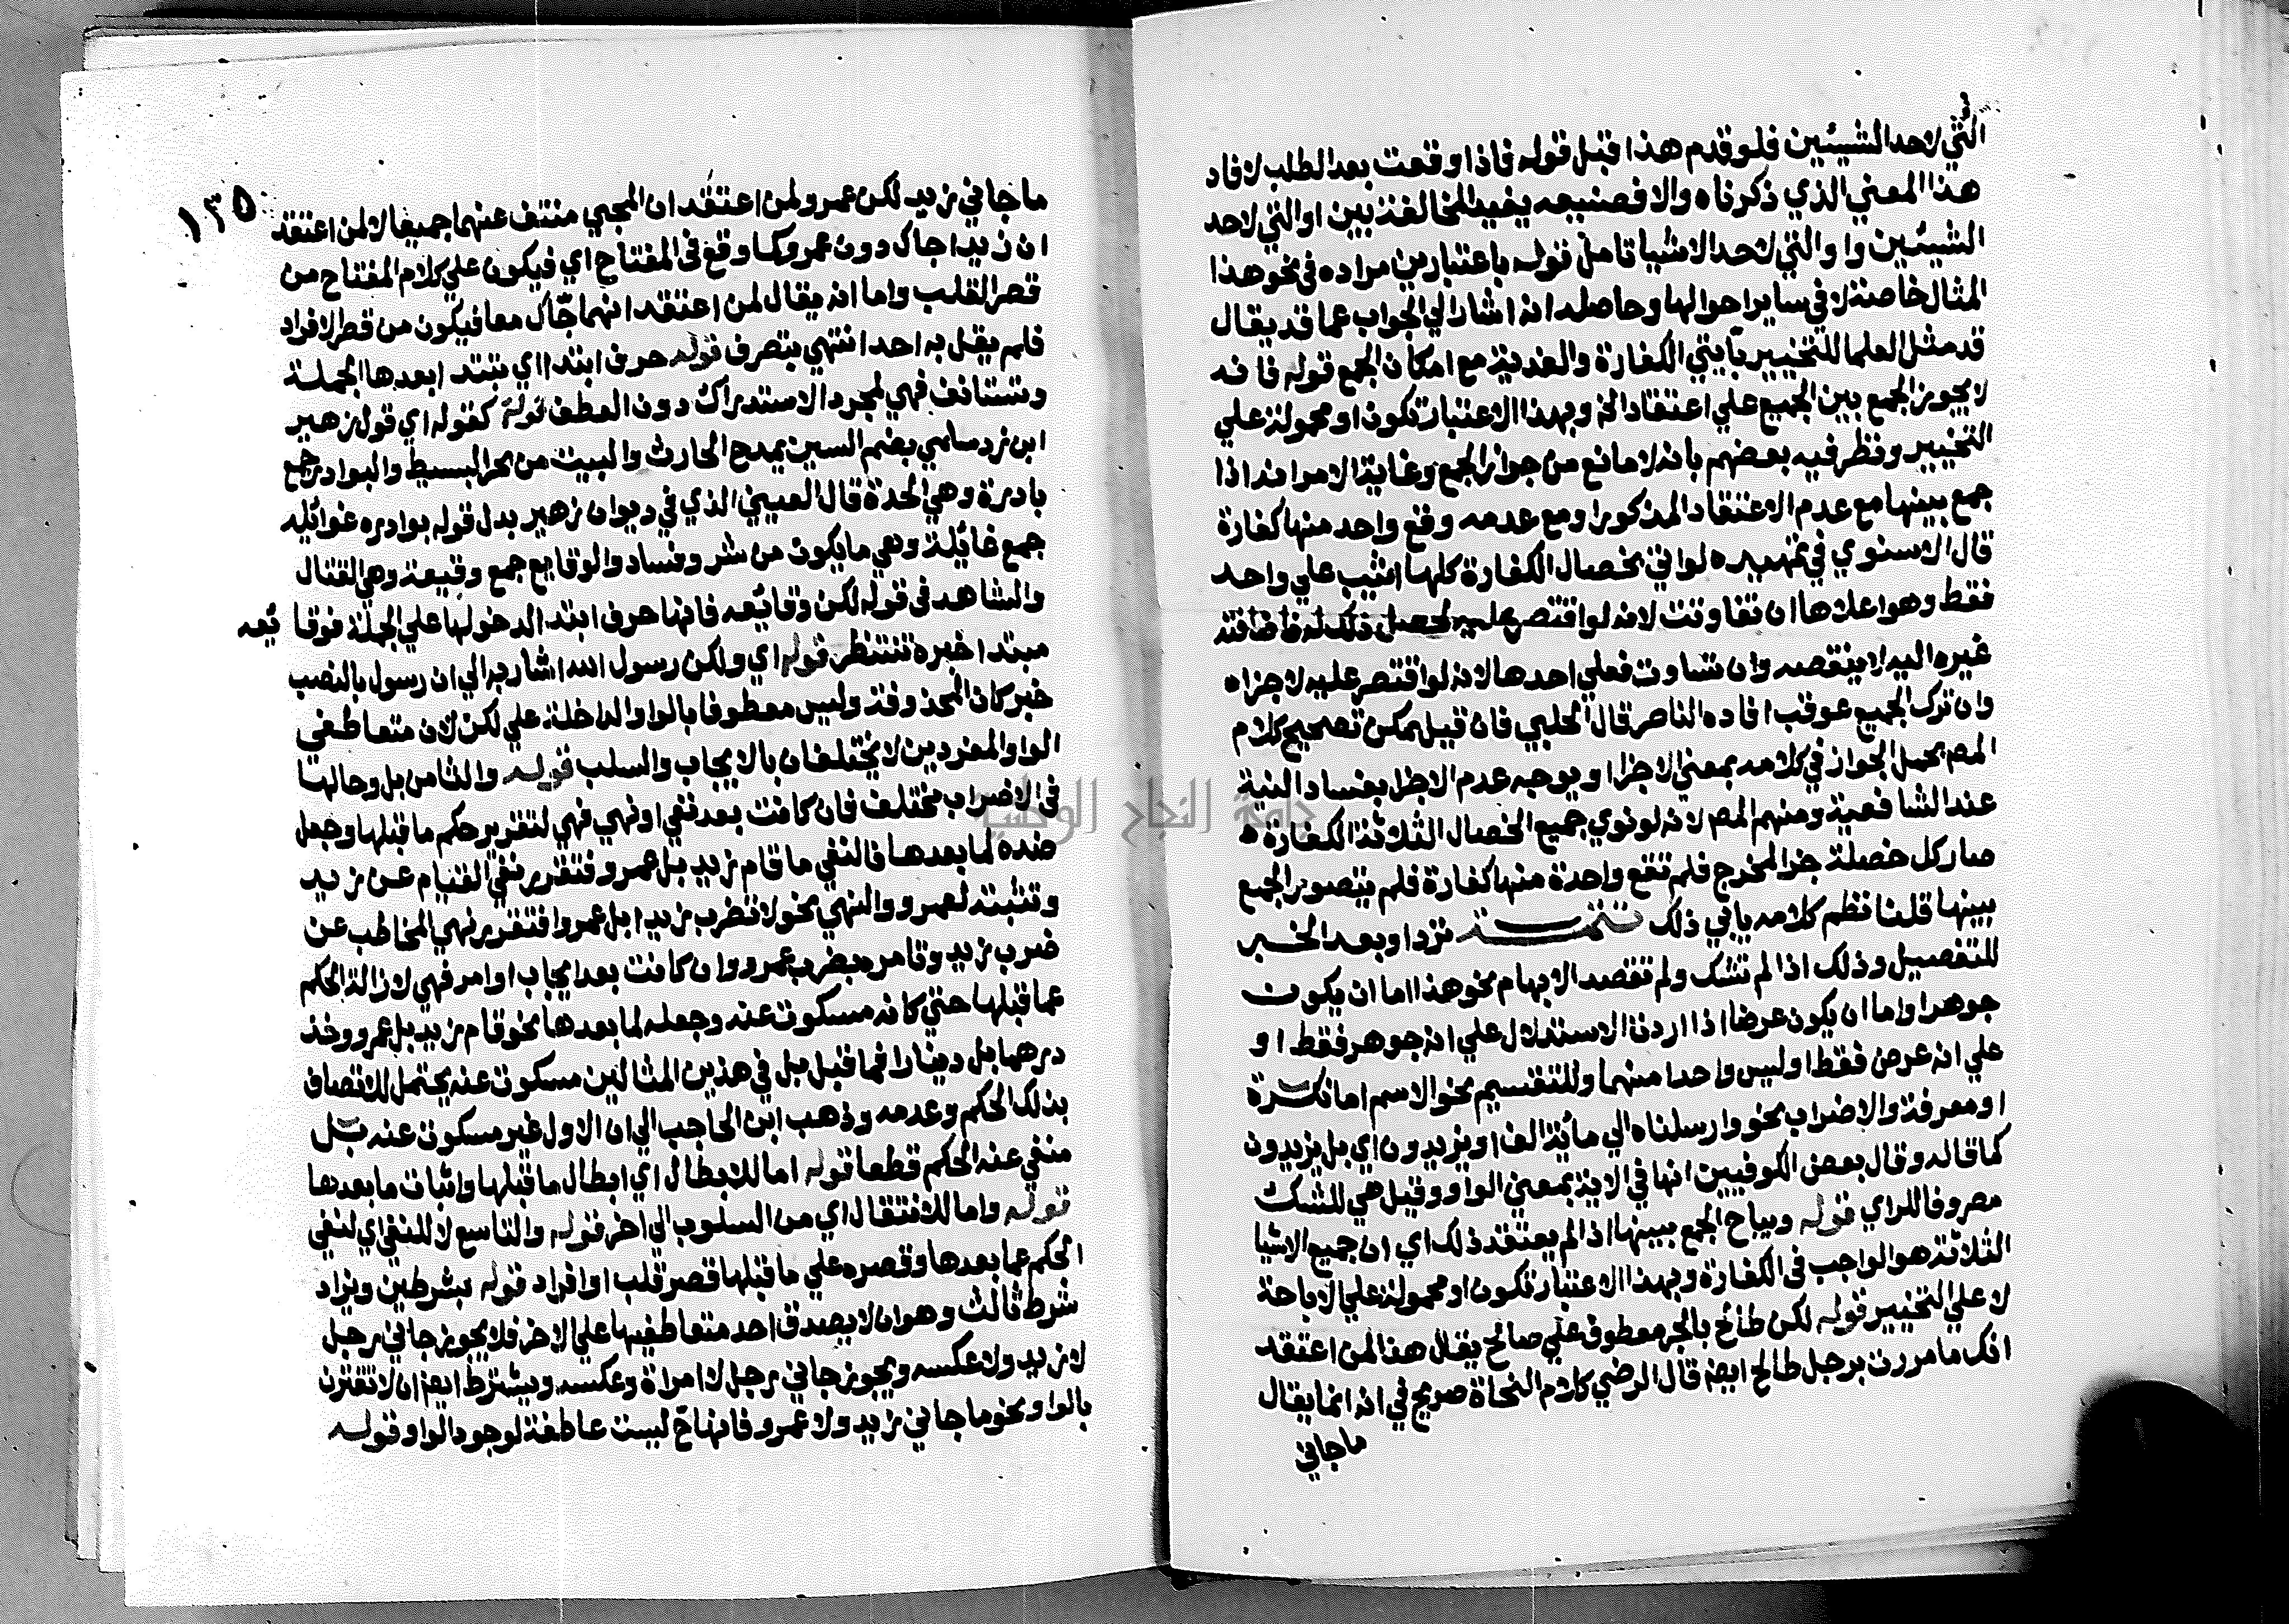 التي لاحد الشيئين فلو قدم هذا قبل قوله فاذا وقعت بعد الطلب لافاد
هذا المعني الذي ذكرناه والا فصنيعه يفيد المخالفة بين او التي لاحد
الشيئين واو التي لاحد الاشيا تامل قوله باعتبارين مراده في نحو هذا
المثال خاصة لا في ساير احوالها وحاصله انه اشار الي الجواب عما قد يقال
قد مثل العلما للتخيير بآيتي الكفارة والفدية مع امكان الجمع قوله فانه
لا يجوز الجمع بين الجميع علي اعتقاد الخ وبهذا الاعتبار تكون او محمولة علي
التخيير ونظر فيه بعضهم بانه لا مانع من جواز الجمع وغاية الامر انه اذا
جمع بينها مع عدم الاعتقاد المذكور او مع عدمه وقع واحد منها كفارة
قال الاسنوي في تمهيده لو اتي بخصال الكفارة كلها اثيب علي واحد
فقط وهو اعلاها ان تفاوتت لانه لو اقتصر عليه لحصل ذلك له فاضافة
غيره اليه لا ينقصه وان تساوت فعلي احدها لانه لو اقتصر عليه لاجزاه
وان ترك الجميع عوقب افاده الناصر قال الحلبي فان قيل يمكن تصحيح كلام
المصم بحمل الجواز في كلامه بمعني الاجزا ويوجه عدم الاجزا بفساد النية
عند الشافعية ومنهم المصم لانه لو نوي جميع الخصال الثلاثة الكفارة ه
صار كل خصلة جزا المخرج فلم تقع واحدة منها كفارة فلم يتصور الجمع
بينها قلنا نظم كلامه يابي ذلك تتمـة تزد او بعد الخبر
للتفصيل وذلك اذا لم تشك ولم تقصد الابهام نحو هذا اما ان يكون
جوهرا واما ان يكون عرضا اذا اردت الاستدلال علي انه جوهر فقط او
علي انه عرض فقط او ليس واحدا منهما وللتقسيم نحو الاسم اما نكرة
او معرفة والاضراب نحو وارسلناه الي مائة الف او يزيدون اي بل يزيدون
كما قاله وقال بعض الكوفيين انها في الاية بمعني الواو وقيل هي للشك
مصروفا للراي قوله ويباح الجمع بينها اذا لم يعتقد ذلك اي ان جميع الاشيا
الثلاثة هو الواجب في الكفارة وبهذا الاعتبار تكون او محمولة علي الاباحة
لا علي التخيير قوله لكن طالح بالجر معطوف علي صالح يقال هذا لمن اعتقد
انك ما مررت برجل طالح ايضم قال الرضي كلام النحاة صريح في انه انما يقال
ما جاني
١٣٥
ما جاني زيد لكن عمرو لمن اعتقد ان المجيي منتف عنهما جميعا لا لمن اعتقد
ان زيدا جاك دون عمرو كما وقع في المفتاح اي فيكون علي كلام المفتاح من
قصر القلب واما انه يقال لمن اعتقد انهما جاك معا فيكون من قصر الافراد
فلم يقل به احد انتهي بتصرف قوله حرف ابتدا اي تبتدا بعدها الجملة
وتستانف فهي لمجرد الاستدراك دون العطف قوله كقوله اي قول زهير
ابن زد سلمي بضم السين يمدح الحارث والبيت من بحر البسيط والبوادر جمع
بادرة وهي الحدة قال العيني الذي في ديوان زهير بدل قوله بوادره غوائله
جمع غائلة وهي ما يكون من شر وفساد والوقايع جمع وقيعة وهي القتال
والشاهد في قوله لكن وقائعه فانها حرف ابتدا لدخولها علي الجملة فوقا ئعه
مبتدا خبره تنتظر قوله اي ولكن رسول الله اشار به الي ان رسول بالنصب
خبر كان المحذوفة وليس معطوفا بالواو الداخلة علي لكن لان متعاطفي
الواو المفردين لا يختلفان بالايجاب والسلب قوله والثامن بل وحالها
في الاضراب مختلف فان كانت بعد نفي او نهي فهي لتقرير حكم ما قبلها وجعل
ضده لما بعدها فالنفي ما قام زيد بل عمرو فتقرير نفي القيام عن زيد
وتثبته لعمرو والنهي نحو لا تضرب زيدا بل عمروا فتقرير نهي المخاطب عن
ضرب زيد وتامره بضرب عمرو وان كانت بعد ايجاب او امر فهي لازالة الحكم
عما قبلها حتي كانه مسكوت عنه وجعله لما بعدها نحو قام زيد بل عمرو وخذ
درهما بل دينارا فما قبل بل في هذين المثالين مسكوت عنه يحتمل للاتصاف
بذلك الحكم وعدمه وذهب ابن الحاجب الي ان الاول غير مسكوت عنه بل
منفي عنه الحكم قطعا قوله اما للابطال اي ابطال ما قبلها واثبات ما بعدها
قوله واما للانتقال اي من اسلوب الي اخر قوله والتاسع لا للنفي اي لنفي
الحكم عما بعدها وقصره علي ما قبلها قصر قلب او افراد قوله بشرطين ويزاد
شرط ثالث وهو ان لا يصدق احد متعاطفيها علي الاخر فلا يجوز جاني رجل
لا زيد ولا عكسه ويجوز جاني رجل لا امراة وعكسه ويشترط ايضم ان لا تقترن
بالواو نحو ما جاني زيد ولا عمرو فانها ح ليست عاطفة لوجود الواو قوله
جامعة النجاح الوطنية